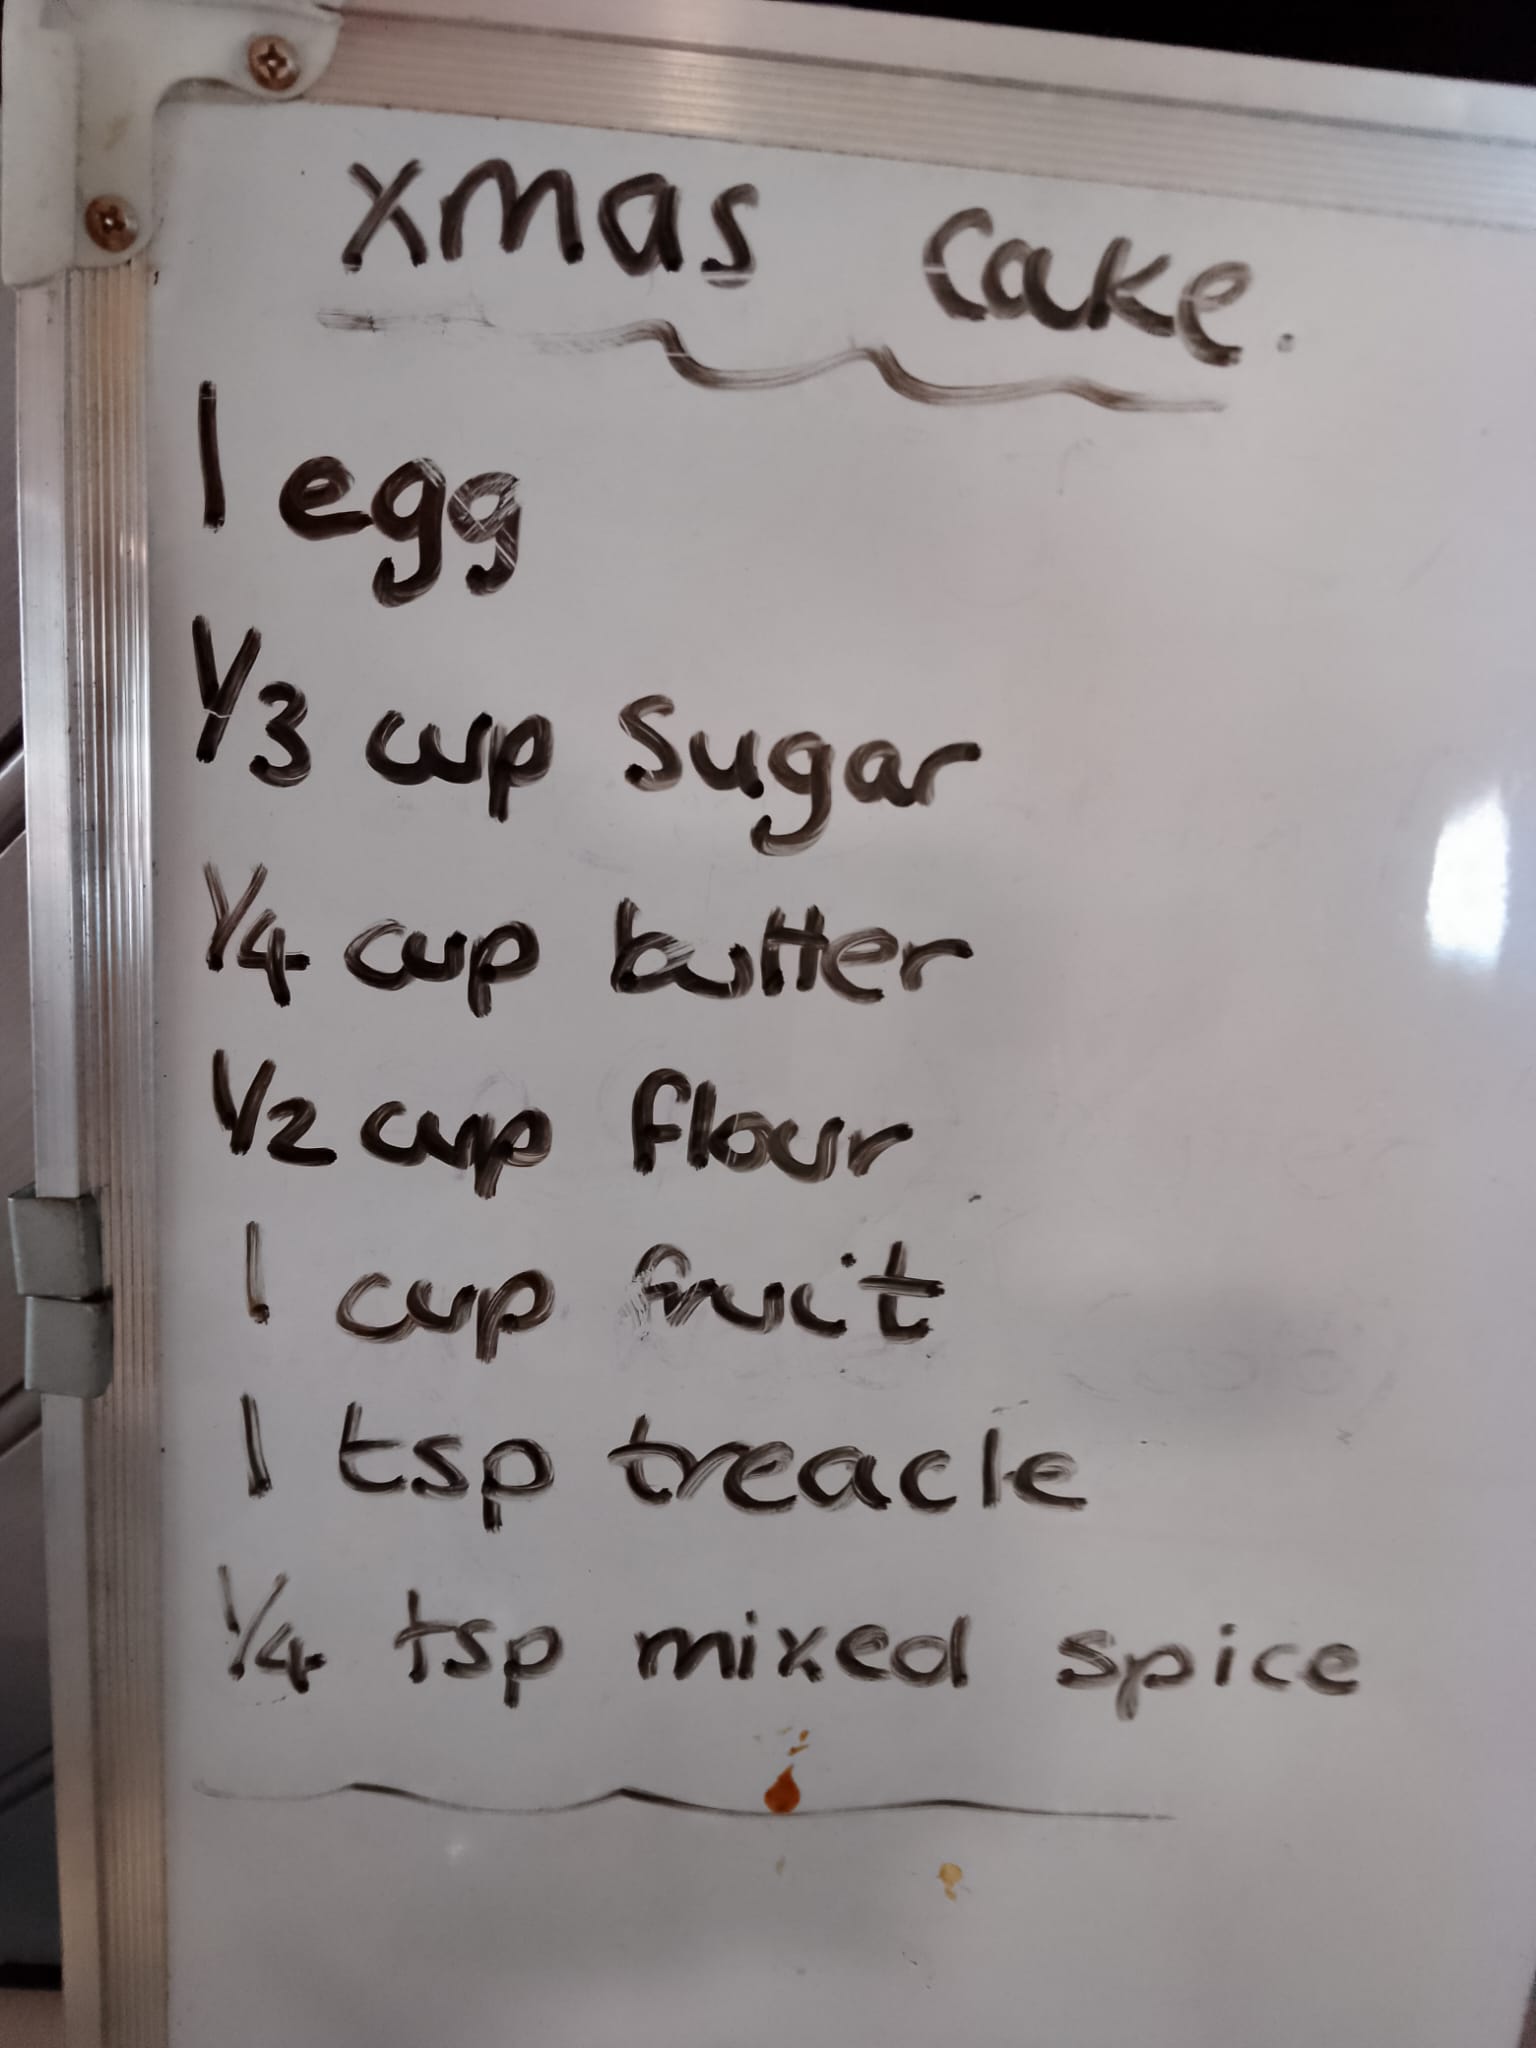 xmas cake.
1 egg
1/3 cup sugar
1/4 cup butter
1/2 cup flour
1 cup fruit
1 tsp treacle
1/4 tsp mixed spice